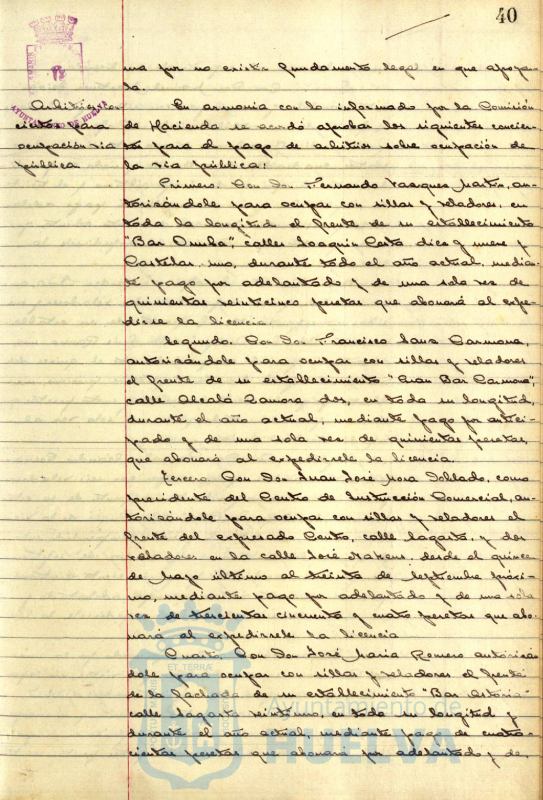 40
ma por no existir fundamento legal en que apoyar-
la.
Arbitrios con-
ciertos para
ocupación via
pública
AYUNTAMIENTO DE HUELVA
En armonia con lo informado por la Comisión
de Hacienda se acordó aprobar los siguientes concier-
tos para el pago de arbitrios sobre ocupación de
la via pública:
Primero. Con Don Fernando Vazquez Martin, au-
torizándole para ocupar con sillas y veladores, en
toda la longitud el frente de su establecimiento
"Bar Onuba", calles Joaquin Costa diez y nueve y
Castelar uno, durante todo el año actual, median-
te pago por adelantado y de una sola vez de
quinientas veinticinco pesetas que abonará al expe-
dirse la licencia.
Segundo. Con Don Francisco Sanz Carmona,
autorizándole para ocupar con sillas y veladores
el frente de su establecimiento "Gran Bar Carmona",
calle Alcalá Zamora dos, en toda su longitud,
durante el año actual, mediante pago por antici-
pado y de una sola vez de quinientas pesetas,
que abonará al expedirsele la licencia.
Tercero. Con Don Juan José Mora Doblado, como
presidente del Centro de Instrucción Comercial, au-
torizándole para ocupar con sillas y veladores el
frente del expresado Centro, calle Sagasta, y dos
veladores en la calle José Nakens, desde el quince
de Mayo último al treinta de Septiembre próxi-
mo, mediante pago por adelantado y de una sola
vez de trescientas cincuenta y cuatro pesetas que abo-
nará al expedirsele la licencia
Cuarto. Con Don José Maria Romero autorizán-
dole para ocupar con sillas y veladores el frente
de la fachada de su establecimiento "Bar Astoria"
calle Sagasta veintiuno, en toda su longitud y
durante el año actual, mediante pago de cuatro-
cientas pesetas que abonará por adelantado y de
ET TERRAE
Ayuntamiento de
HUELVA